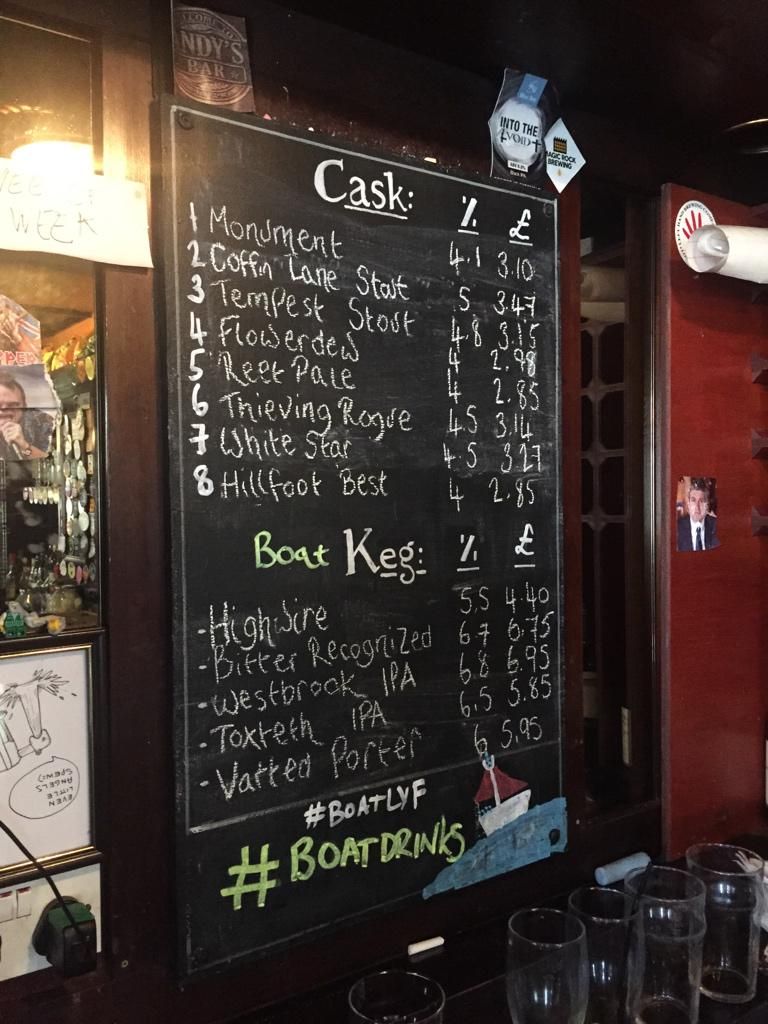 NDY'S
BAR
INTO THE
VOID
MAGIC ROCK
BREWING
WEEK
Cask: % £
1 Monument 4.1 3.10
2 Coffin Lane Stout 5 3.47
3 Tempest Stout 4.8 3.15
4 Flowerdew 4 2.98
5 Reet Pale 4 2.85
6 Thieving Rogue 4.5 3.14
7 White Star 4.5 3.27
8 Hillfoot Best 4 2.85
Boat Keg: % £
-Highwire 5.5 4.40
-Bitter Recognized 6.7 6.75
-Westbrook IPA 6.8 6.95
-Toxteth IPA 6.5 5.85
-Vatted Porter 6 5.95
#BOATLYF
#BOATDRINKS
EVEN
LITTLE
ANGELS
SPEW:)